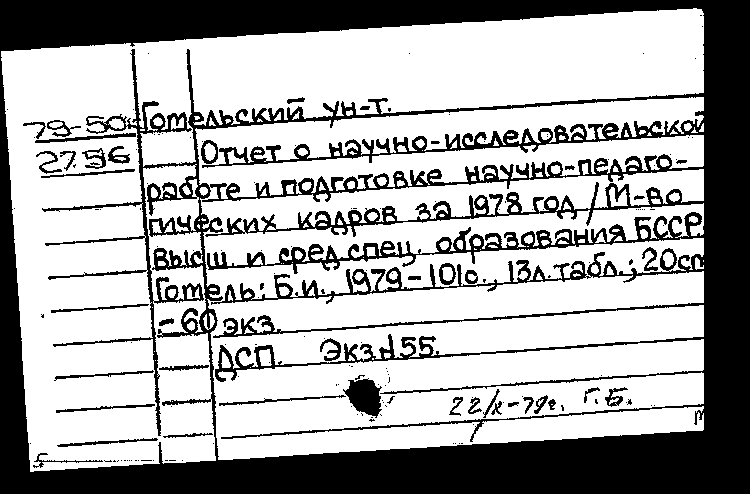 79-50 Гомельский ун-т.
2756 Отчет о научно-исследовательской
работе и подготовке научно-педаго-
гических кадров за 1978 год / М-во
высш. и сред. спец. образования БССР.
Гомель: Б.и., 1979. - 101с., 13л. табл.; 20см
- 60 экз.
ДСП. Экз.№55.
22/X-79г. Г.Б.